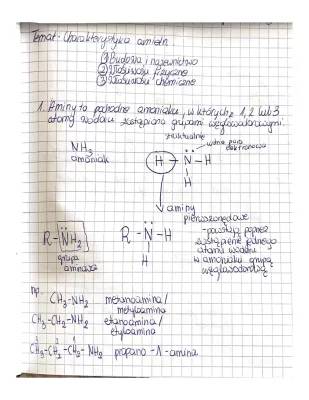 Temat: Charakterystyka amin.
① Budowa i nazewnictwo
② Właściwości fizyczne
③ Właściwości chemiczne
1. Aminy to pochodne amoniaku, w których 1, 2 lub 3
atomy wodoru zastąpiono grupami węglowodorowymi
NH₃
amoniak
wolna para
elektronowa
H - N - H
H
aminy
pierwszorzędowe
- powstają poprzez
zastąpienie jednego
atomu wodoru
w amoniaku grupą
węglowodorową
R - NH₂
grupa
aminowa
R - N - H
H
np.
CH₃-NH₂ metanoamina/
metyloamina
CH₃-CH₂-NH₂ etanoamina/
etyloamina
3 2 1
CH₃-CH₂-CH₂-NH₂ propano-1-amina